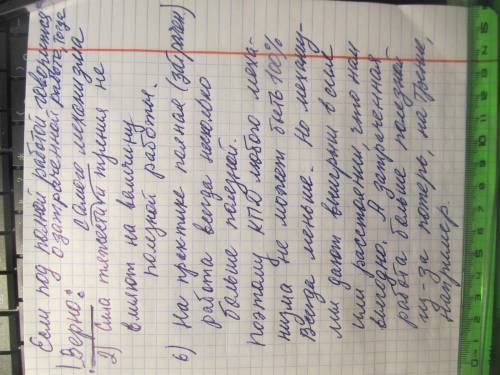 Если под полной работой говорится
о затраченной работе, тогда
Верно:
2) Сила тяжести самого механизма
и сила трения не
влияют на величину
полезной работы.
6) На практике полная (затрачен)
работа всегда несколько
больше полезной.
Поэтому КПД любого меха-
низма не может быть 100%
Всегда меньше. Но механиз-
мы дают выигрыш в силе
или расстоянии, что нам
выгодно. А затраченная
работа больше полезной
из-за потерь, на трение,
например.